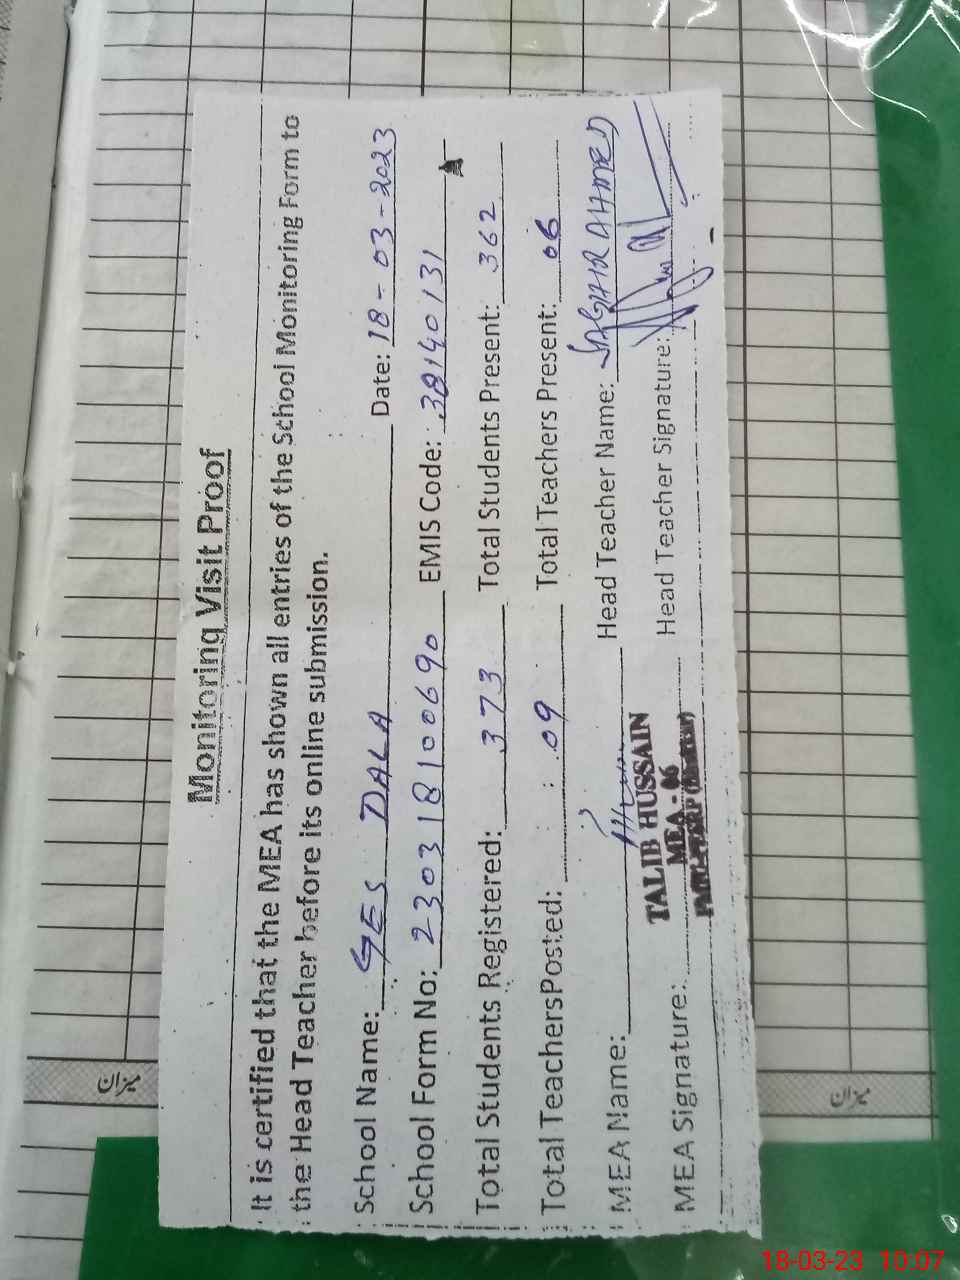 Monitoring Visit Proof
It is certified that the MEA has shown all entries of the School Monitoring Form to
the Head Teacher before its online submission.
School Name: GES DALA Date: 18-03-2023
School Form No: 2303181 00690 EMIS Code: 38140131
Total Students Registered: 373 Total Students Present: 362
Total TeachersPosted: 09 Total Teachers Present: 06
MEA Name: Head Teacher Name: SAGHIR AHMED
TALIB HUSSAIN
MEA - 06
MEA Signature: Head Teacher Signature:
میزان
میزان
18-03-23 10:07